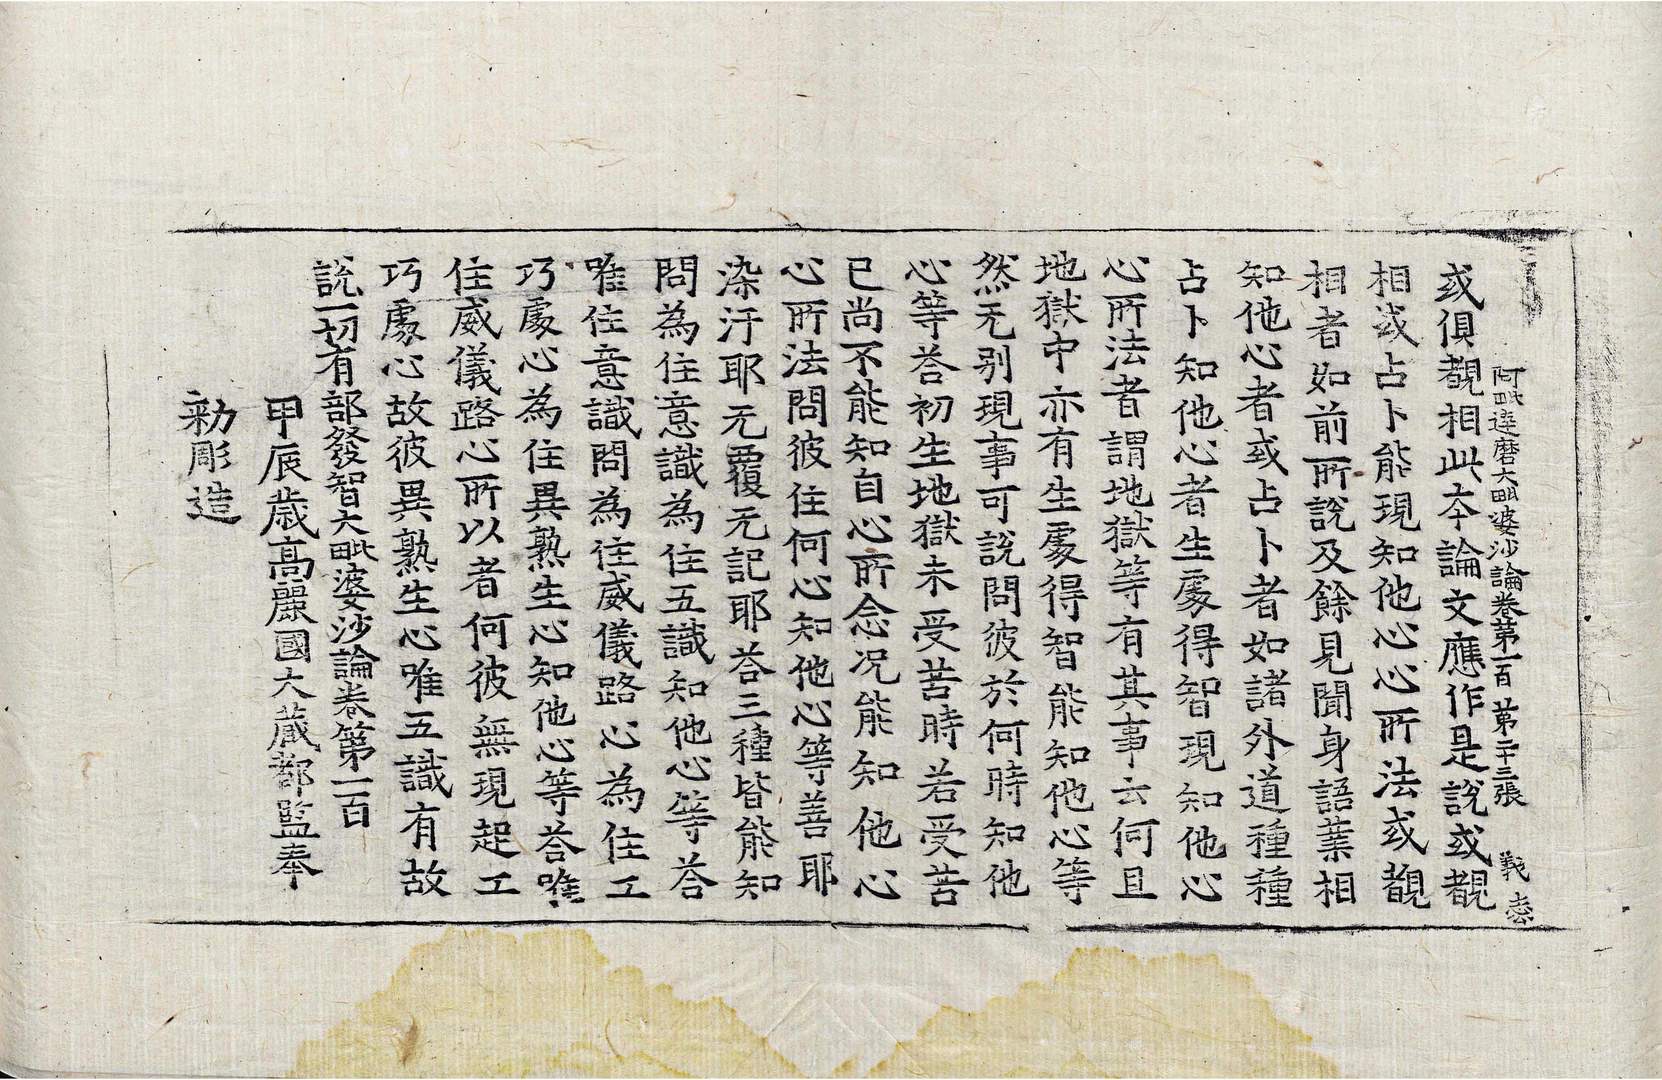 阿毗達磨大毗婆沙論卷第一百 第二十三張 義
或俱覩相此本論文應作是說或覩
相或占卜能現知他心心所法或覩
相者如前所說及餘見聞身語業相
知他心者或占卜者如諸外道種種
占卜知他心者生處得智現知他心
心所法者謂地獄等有其事云何且
地獄中亦有生處得智能知他心等
然无别現事可說問彼於何時知他
心等荅初生地獄未受苦時若受苦
已尚不能知自心所念况能知他心
心所法問彼住何心知他心等善耶
染汙耶无覆无記耶荅三種皆能知
問為住意識為住五識知他心等荅
唯住意識問為住威儀路心為住工
巧處心為住異熟生心知他心等荅唯
住威儀路心所以者何彼無現起工
巧處心故彼異熟生心唯五識有故
說一切有部發智大毗婆沙論卷第一百
甲辰歲高麗國大藏都監奉
勑彫造